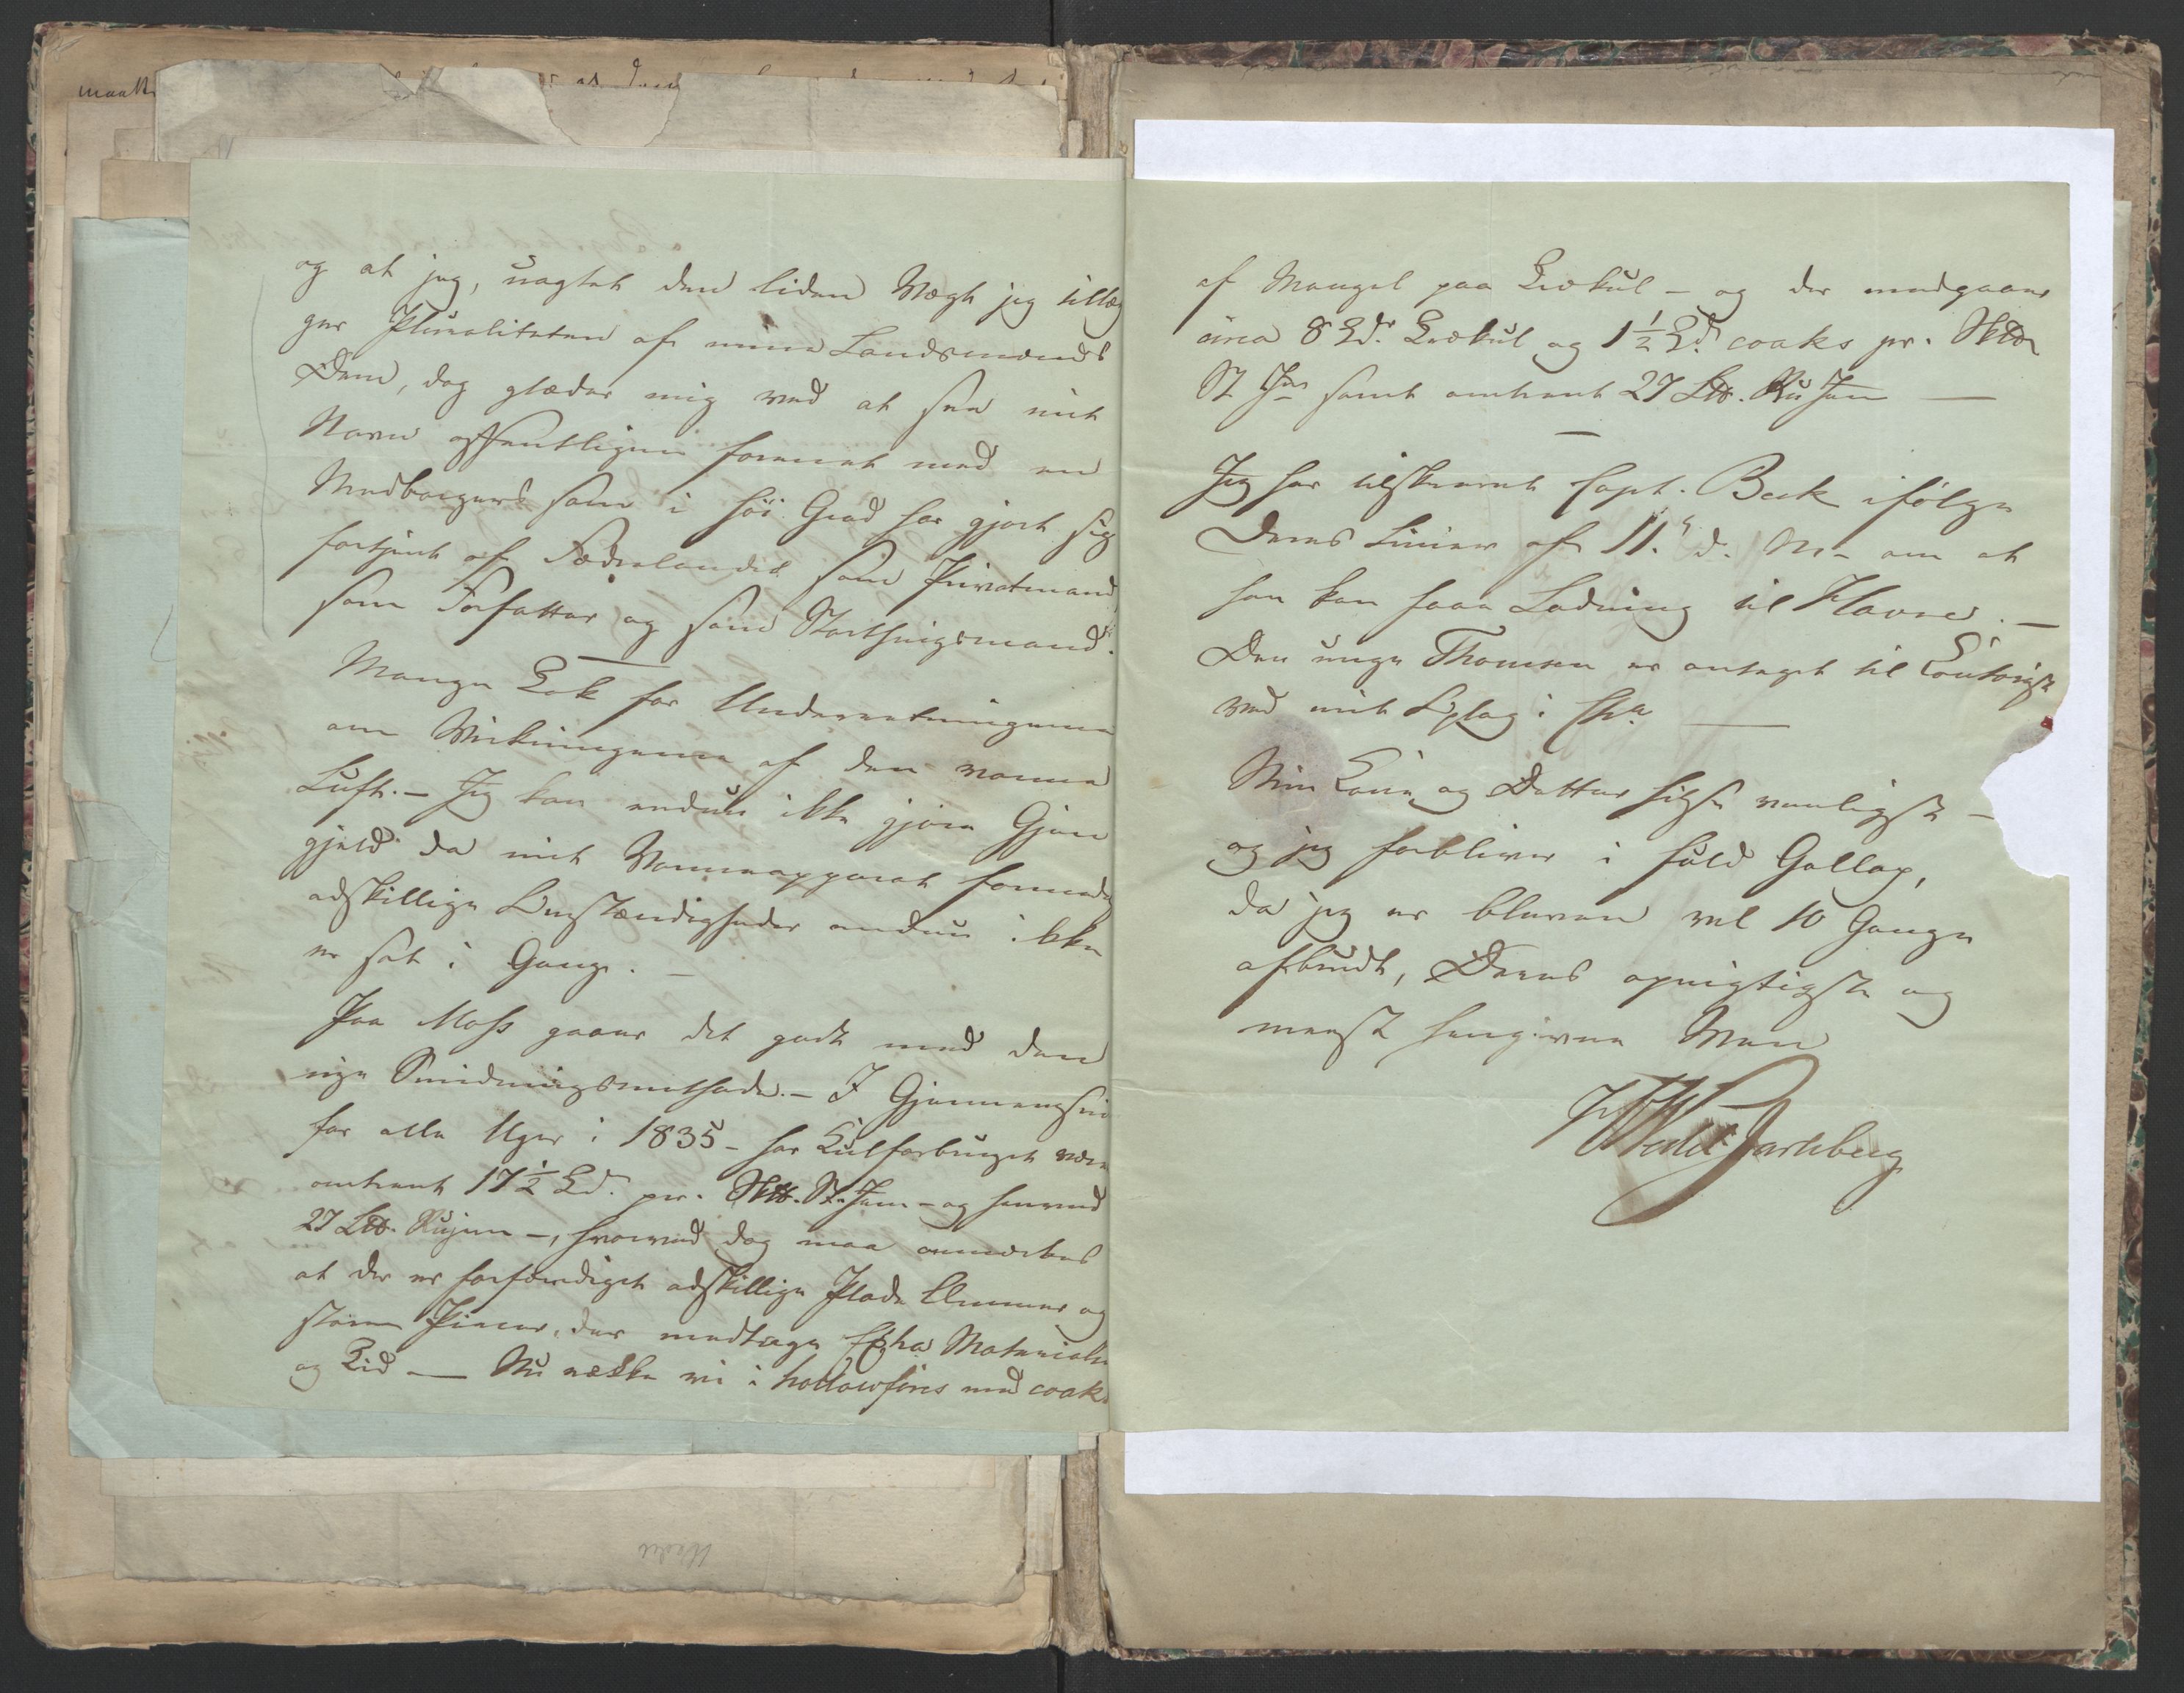 og at jeg, uagtet den liden Vægt jeg tillæg
ger Pluraliteten af mine Landsmænds
Dom, dog glæder mig ved at see mit
Navn offentligen forenet med en
Medborgers som i høi Grad har gjort sig
fortjent af Fædrelandet som Privatmand
som Forfatter og som Storthingsmand.
Mange Tak for Underretningerne
om Virkningerne af den varme
Luft. – Jeg kan endnu ikke gjøre Gjen
gjeld da mit Varmeapparat formedelst
adskillige Omstændigheder endnu ikke
er sat i Gang. –
Paa Moss gaaer det godt med den
nye Smidningsmethode. – I Gjennemsnit
for alle Uger i 1835 – har Kulforbruget været
omtrent 17½ Td. pr. Sk℔. St. Jern – og henved
27 L℔. Rujern –, hvorved dog maa anmærkes
at der er forfærdiget adskillige Plade Emner og
større Piecer, der medtage Extra Materialier
og Tid — Nu række vi i hollowfires med coaks
af Mangel paa Trækul – og der medgaaer
circa 8 Tdr. Trækul og 1½ Td. coaks pr. Sk℔
St. Jern samt omtrent 27 L℔. Ru Jern —
Jeg har tilskrevet Capt. Beck ifølge
Deres Linier af 11. d. M. – om at
han kan faae Ladning til Havre. –
Den unge Thomsen er antaget til Contorist
ved mit Oplag i Chra. —
Min Kone og Datter hilse venligst –
og jeg forbliver i fuld Gallop,
da jeg er bleven vel 10 Gange
afbrudt, Deres oprigtigste og
meest hengivne Ven
HWedel Jarlsberg
maatte
Wedel